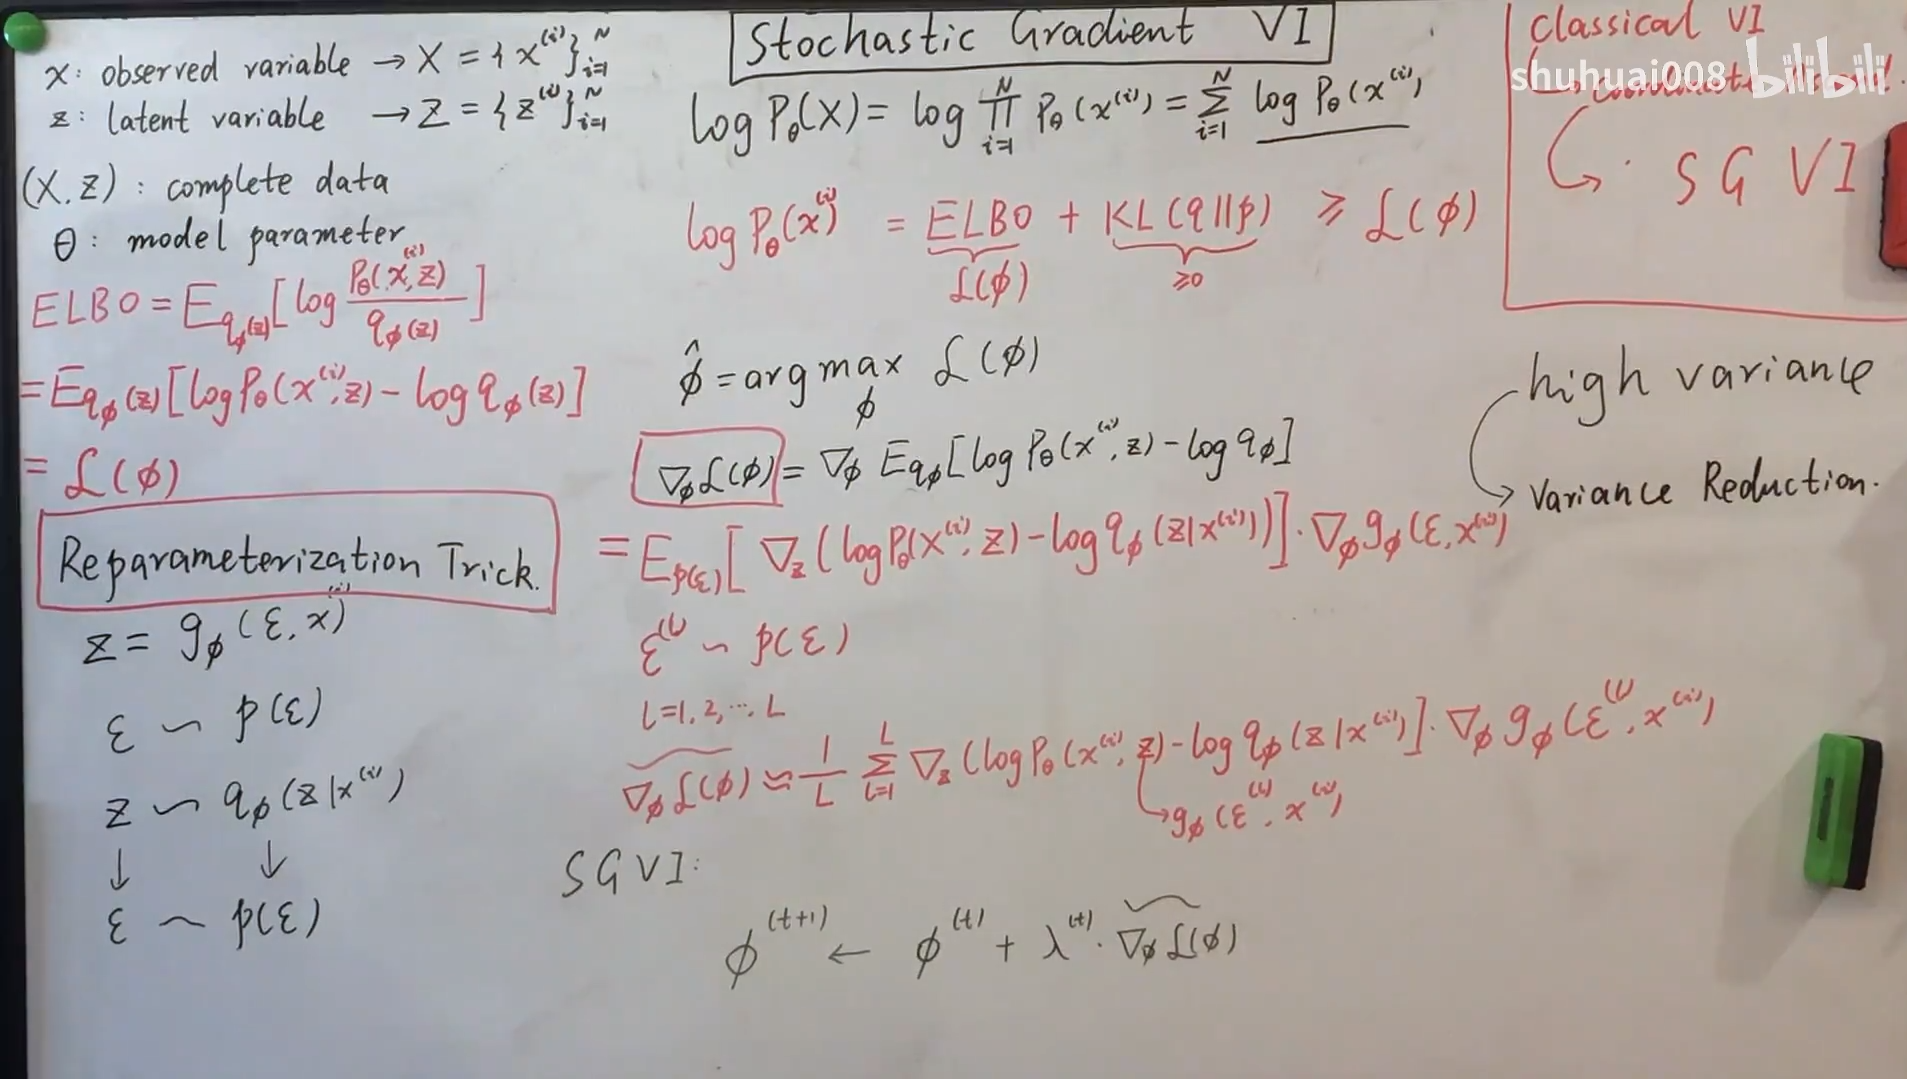 x: observed variable → X = {x^(i)}_{i=1}^N
z: latent variable → Z = {z^(i)}_{i=1}^N
(X, Z): complete data
θ: model parameter
ELBO = E_{q_ϕ(z)}[log P_θ(x^(i), z) / q_ϕ(z)]
= E_{q_ϕ(z)}[log P_θ(x^(i), z) - log q_ϕ(z)]
= ℒ(ϕ)
Reparameterization Trick.
z = g_ϕ(ε, x^(i))
ε ~ p(ε)
z ~ q_ϕ(z|x^(i))
↓ ↓
ε ~ p(ε)
Stochastic Gradient VI
log P_θ(X) = log ∏_{i=1}^N P_θ(x^(i)) = ∑_{i=1}^N log P_θ(x^(i))
log P_θ(x^(i)) = ELBO + KL(q||p) ≥ ℒ(ϕ)
ℒ(ϕ) ≥0
ϕ̂ = arg max_ϕ ℒ(ϕ)
∇_ϕ ℒ(ϕ) = ∇_ϕ E_{q_ϕ}[log P_θ(x^(i), z) - log q_ϕ]
= E_{p(ε)}[∇_z (log P_θ(x^(i), z) - log q_ϕ(z|x^(i)))] · ∇_ϕ g_ϕ(ε, x^(i))
ε^(l) ~ p(ε)
l=1, 2, ..., L
∇_ϕ ℒ(ϕ) ≈ 1/L ∑_{l=1}^L ∇_z (log P_θ(x^(i), z) - log q_ϕ(z|x^(i))] · ∇_ϕ g_ϕ(ε^(l), x^(i))
→ g_ϕ(ε^(l), x^(i))
SGVI:
ϕ^(t+1) ← ϕ^(t) + λ^(t) · ∇_ϕ ℒ(ϕ)
classical VI
shuhuai008 bilibili
SGVI
high variance
→ Variance Reduction.